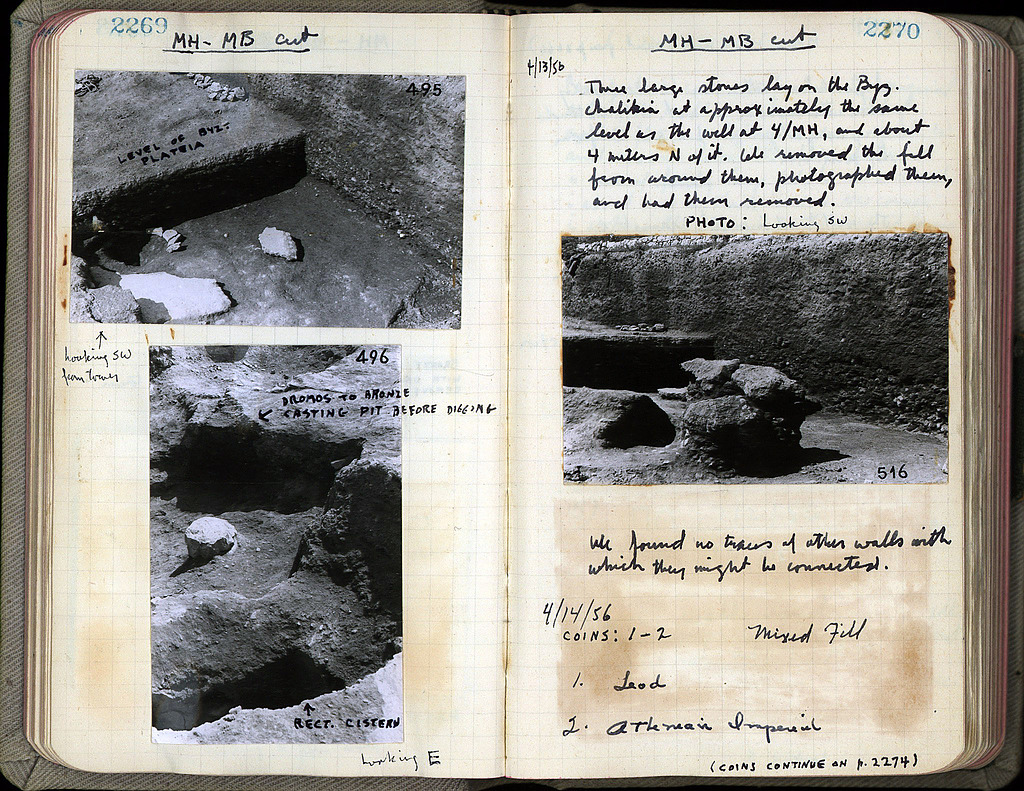 2269
MH-MB cut
495
LEVEL OF BYZ.
PLATEIA
↑
Looking SW
from tower
496
DROMOS TO BRONZE
↙ CASTING PIT BEFORE DIGGING
↑
RECT. CISTERN
Looking E
2270
MH-MB cut
4/13/56
Three large stones lay on the Byz.
chalikia at approximately the same
level as the well at 4/MH, and about
4 meters N of it. We removed the fill
from around them, photographed them,
and had them removed.
PHOTO: Looking SW
516
We found no traces of other walls with
which they might be connected.
4/14/56
COINS: 1-2 Mixed Fill
1. Lead
2. Athenian Imperial
(COINS CONTINUE ON p. 2274)